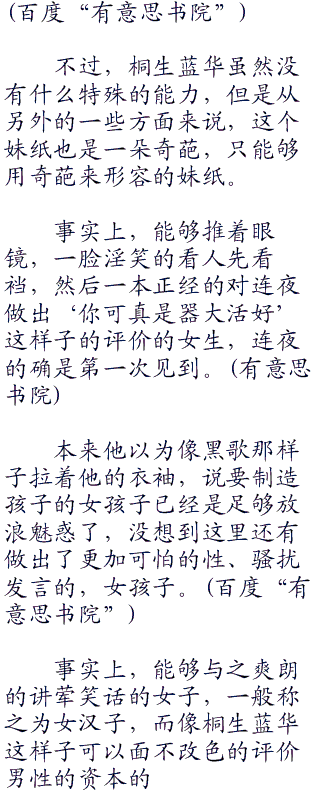 (百度“有意思书院”)
不过，桐生蓝华虽然没
有什么特殊的能力，但是从
另外的一些方面来说，这个
妹纸也是一朵奇葩，只能够
用奇葩来形容的妹纸。
事实上，能够推着眼
镜，一脸淫笑的看人先看
裆，然后一本正经的对连夜
做出‘你可真是器大活好’
这样子的评价的女生，连夜
的确是第一次见到。(有意思
书院)
本来他以为像黑歌那样
子拉着他的衣袖，说要制造
孩子的女孩子已经是足够放
浪魅惑了，没想到这里还有
做出了更加可怕的性、骚扰
发言的，女孩子。(百度“有
意思书院”)
事实上，能够与之爽朗
的讲荤笑话的女子，一般称
之为女汉子，而像桐生蓝华
这样子可以面不改色的评价
男性的资本的